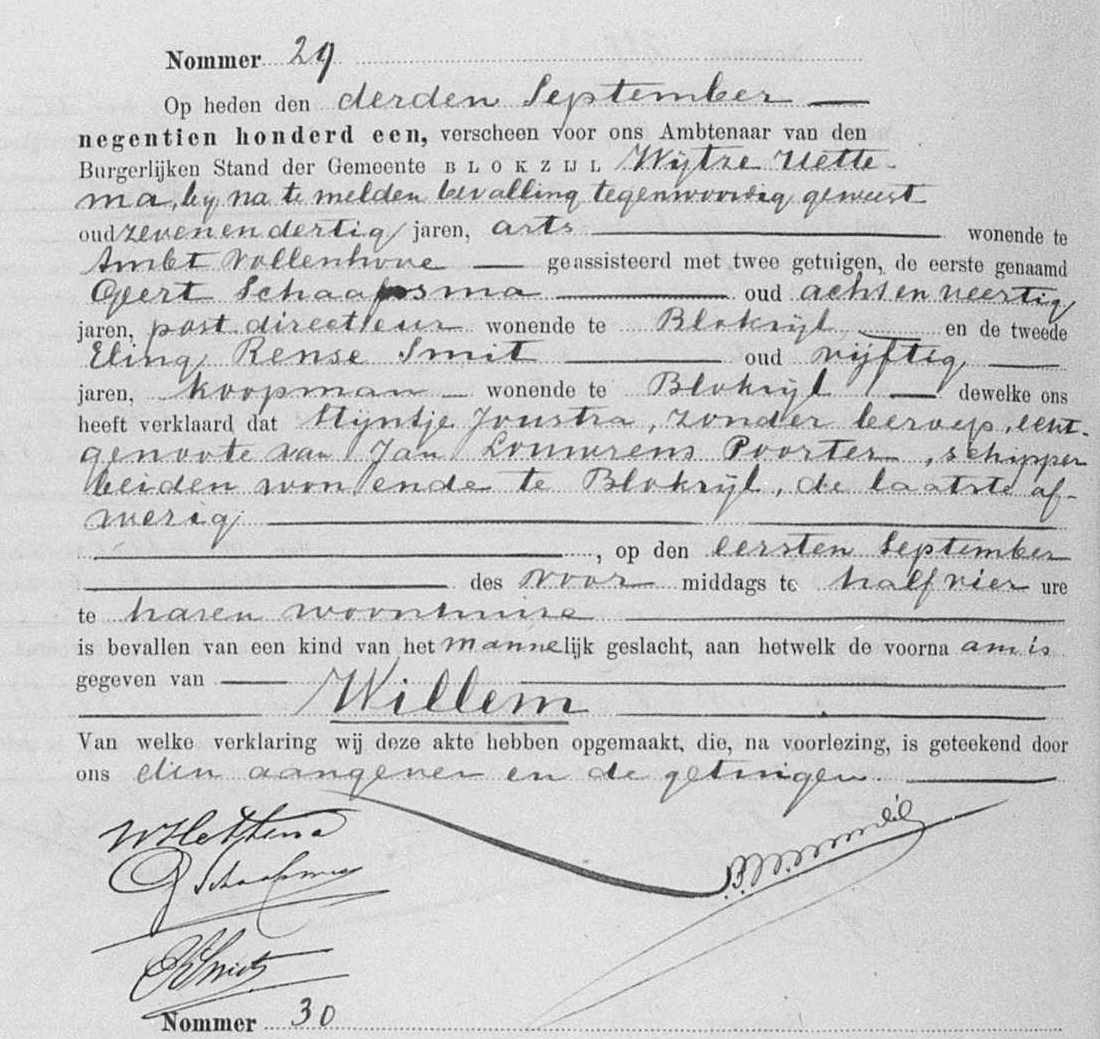 Nommer 29
Op heden den derden September
negentien honderd een, verscheen voor ons Ambtenaar van den
Burgerlijken Stand der Gemeente BLOKZIJL Wijtze Hette-
ma, bij na te melden bevalling tegenwoordig geweest
oud zevenendertig jaren, arts wonende te
Ambt Vollenhove geassisteerd met twee getuigen, de eerste genaamd
Geert Schaapsma oud achtenveertig
jaren, postdirecteur wonende te Blokzijl en de tweede
Eling Rense Smit oud vijftig
jaren, koopman wonende te Blokzijl dewelke ons
heeft verklaard dat Stijntje Joustra, zonder beroep, echt-
genoote van Jan Louwrens Poorter, schipper
beiden wonende te Blokzijl, de laatste af-
wezig
, op den eersten September
des voor middags te half vier ure
te haren woonhuize
is bevallen van een kind van het mannelijk geslacht, aan hetwelk de voorna am is
gegeven van
Willem
Van welke verklaring wij deze akte hebben opgemaakt, die, na voorlezing, is geteekend door
ons den aangever en de getuigen.
W Hettema
G Schaapsma
E R Smit
Nommer 30